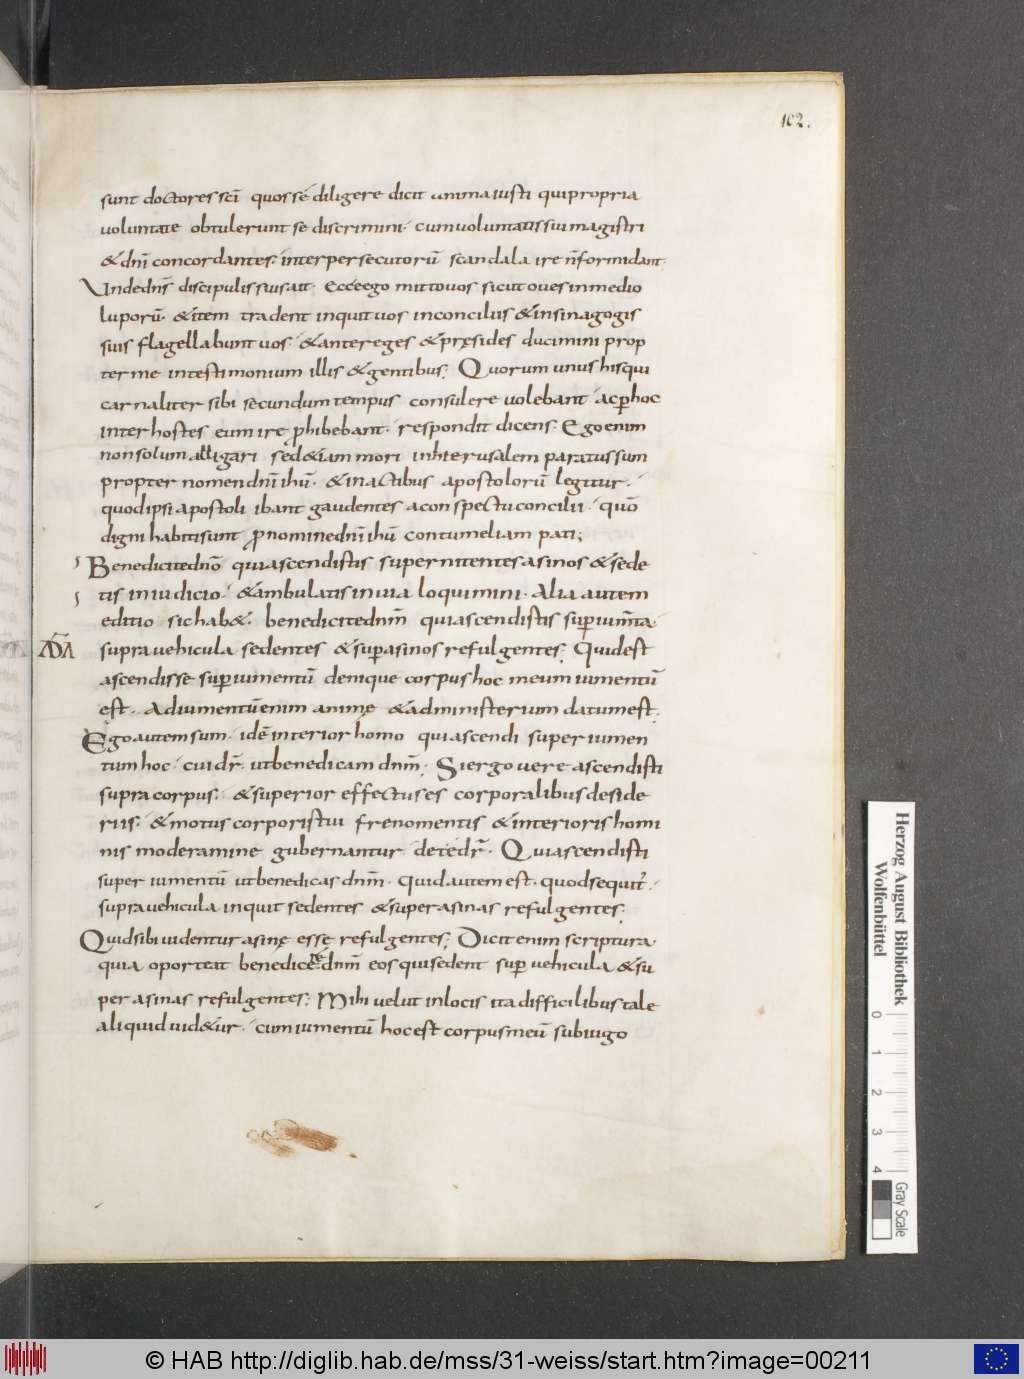 102.
sunt doctores scī quos sé diligere dicit anima iusti qui propria
uoluntate obtulerunt se discrimini· cum uoluntatis sui magistri
& dnī concordantes· inter persecutorū scandala ire n̄ formidant·
Unde dn̄s discipulis suis ait· Ecce ego mitto uos sicut oues in medio
luporū· & item tradent inquit uos in conciliis & in sinagogis
suis flagellabunt uos· & ante reges & pręsides ducimini prop
ter me in testimonium illis & gentibus; Quorum unus his qui
carnaliter sibi secundum tempus consulere uolebant· ac ꝑ hoc
inter hostes eum ire ꝓhibebant· respondit dicens· Ego enim
non solum alligari sed &iam mori in hierusalem paratus sum
propter nomen dnī ihū· & in actibus apostolorū legitur·
quod ipsi apostoli ibant gaudentes a conspectu concilii· quō
digni habiti sunt ꝓ nomine dnī ihū contumeliam pati;
Benedicite dnō qui ascendistis super nitentes asinos & sede
tis in iudicio· & ambulatis in uia loquimini· Alia autem
editio sic hab&· benedicite dnm̄ qui ascendistis suꝑ ium̄ta·
supra uehicula sedentes & suꝑ asinos refulgentes; Quid est
ascendisse suꝑ iumentū denique corpus hoc meum iumentū
est· Adiumentū enim animę & administerium datum est;
Ego autem sum· idē interior homo qui ascendi super iumen
tum hoc· cui dr̄· ut benedicam dnm̄· Si ergo uere ascendisti
supra corpus· & superior effectus es corporalibus deside
riis· & motus corporis tui freno mentis & interioris homi
nis moderamine gubernantur de te dr̄· Qui ascendisti
super iumentū ut benedicas dnm̄· quid autem est· quod sequit̄·
supra uehicula inquit sedentes & super asinas refulgentes;
Quid sibi uidentur asinę esse refulgentes; Dicit enim scriptura·
quia oporteat benedicere dnm̄ eos qui sedent suꝑ uehicula & su
per asinas refulgentes; Mihi uelut in locis ita difficilibus tale
aliquid uid&ur· cum iumentū hoc est corpus meū subiugo
Herzog August Bibliothek
Wolfenbüttel
0 1 2 3 4
Gray Scale
© HAB http://diglib.hab.de/mss/31-weiss/start.htm?image=00211